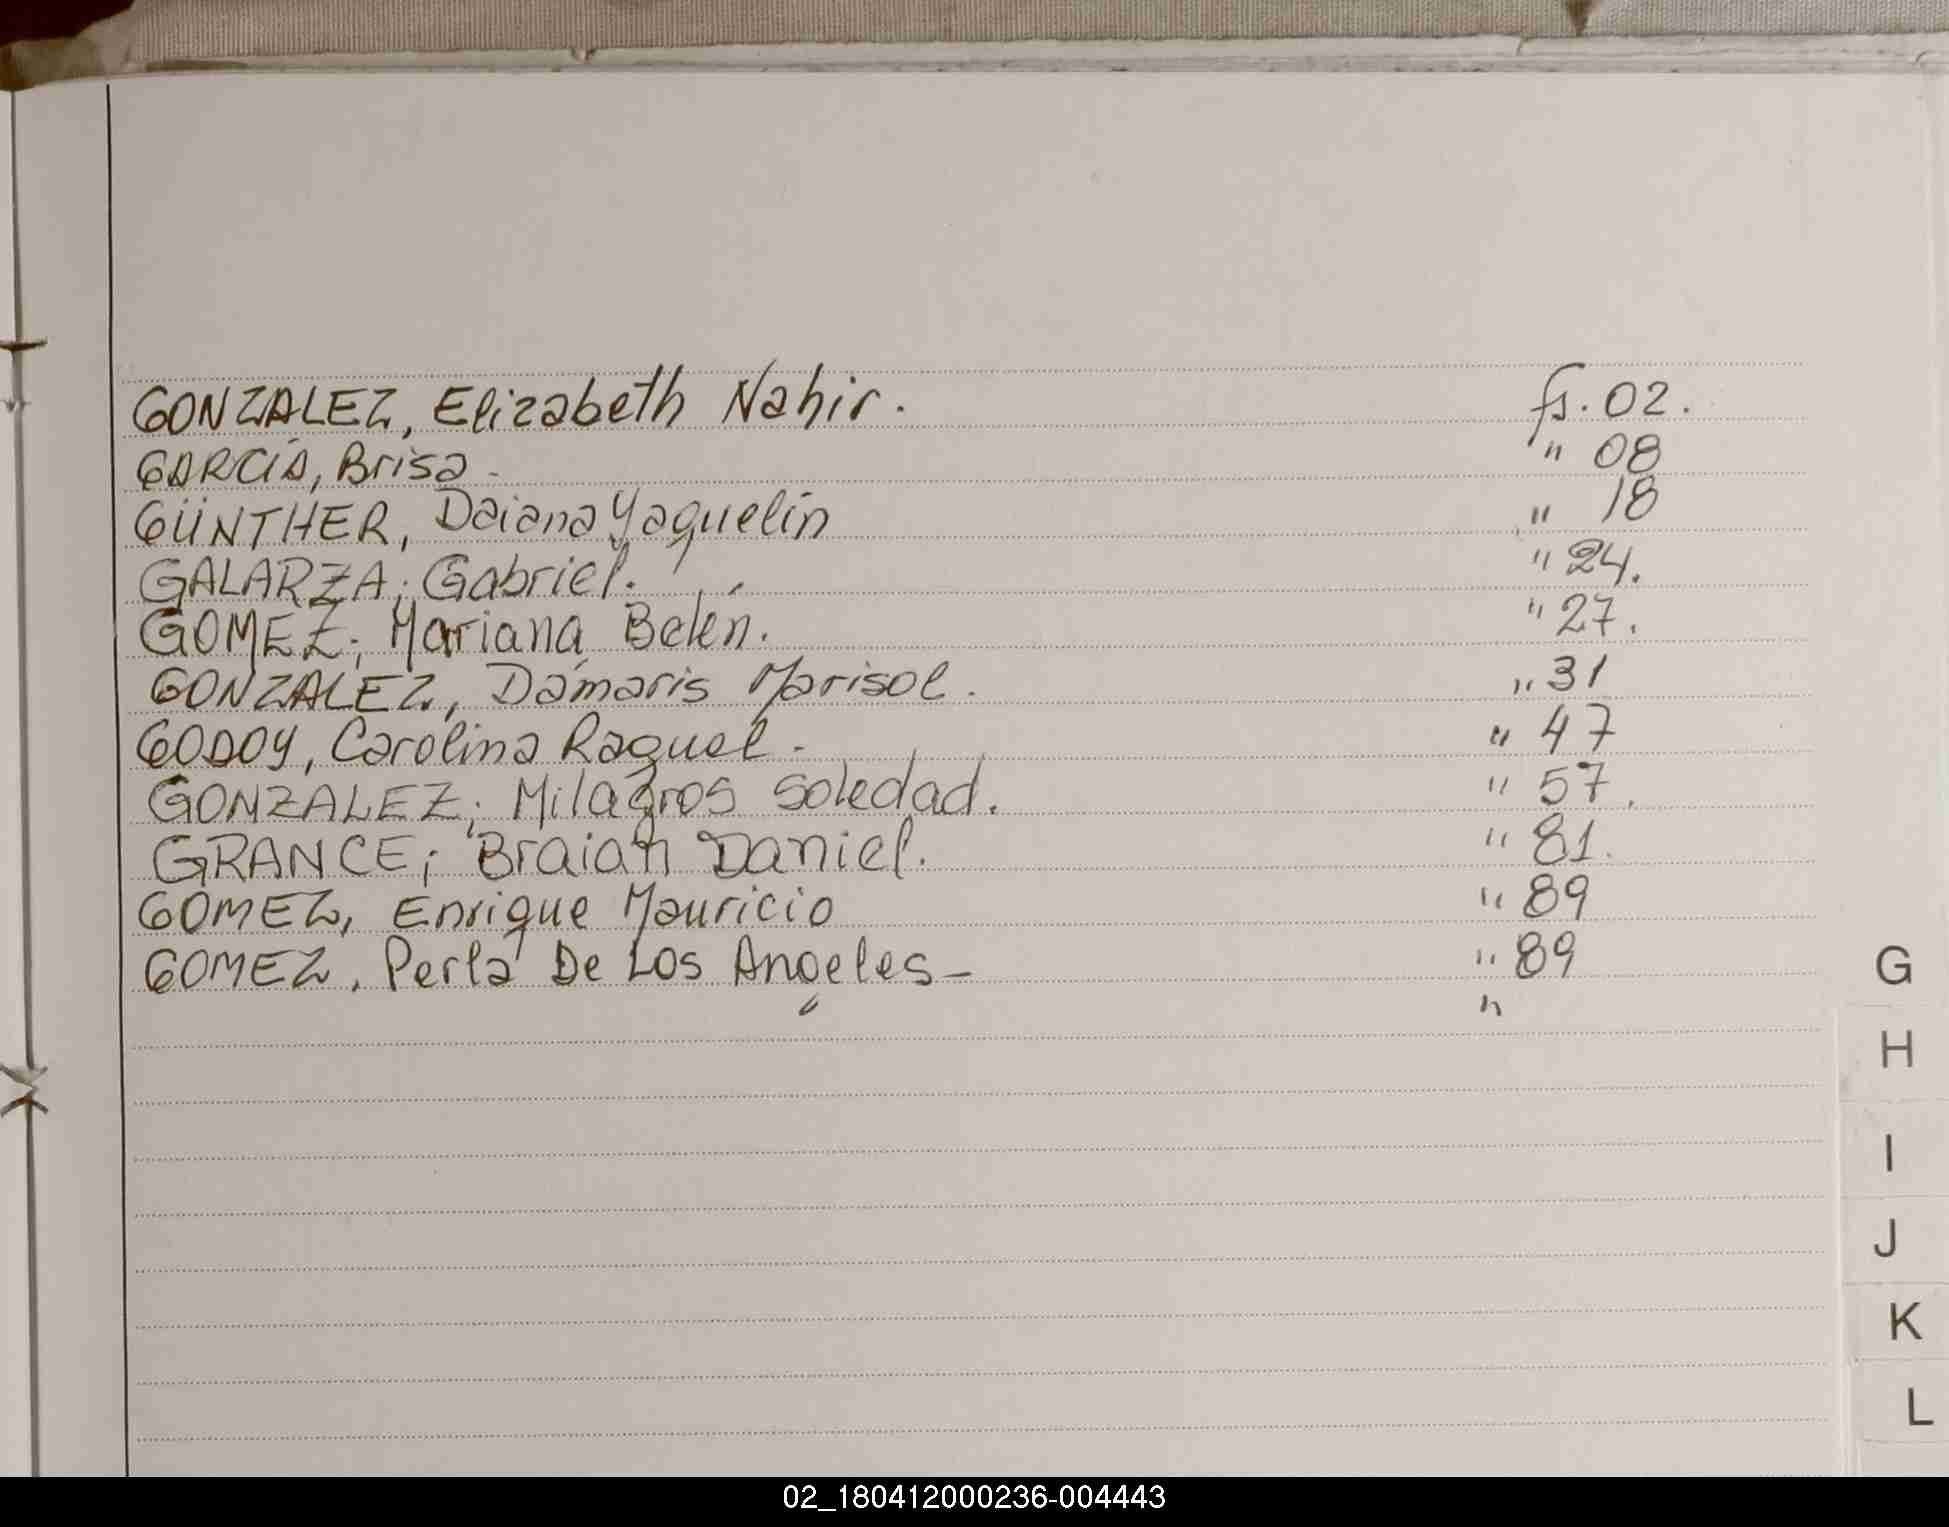 GONZALEZ, Elizabeth Nahir. fs. 02.
GARCÍA, Brisa. " 08
GÜNTHER, Daiana Yaquelin " 18
GALARZA; Gabriel. " 24.
GOMEZ; Mariana Belén. " 27.
GONZALEZ, Dámaris Marisol. " 31
GODOY, Carolina Raquel. " 47
GONZALEZ; Milagros Soledad. " 57.
GRANCE; Braian Daniel. " 81.
GOMEZ, Enrique Mauricio " 89
GOMEZ, Perla De Los Angeles - " 89
" "
G
H
I
J
K
L
02_180412000236-004443